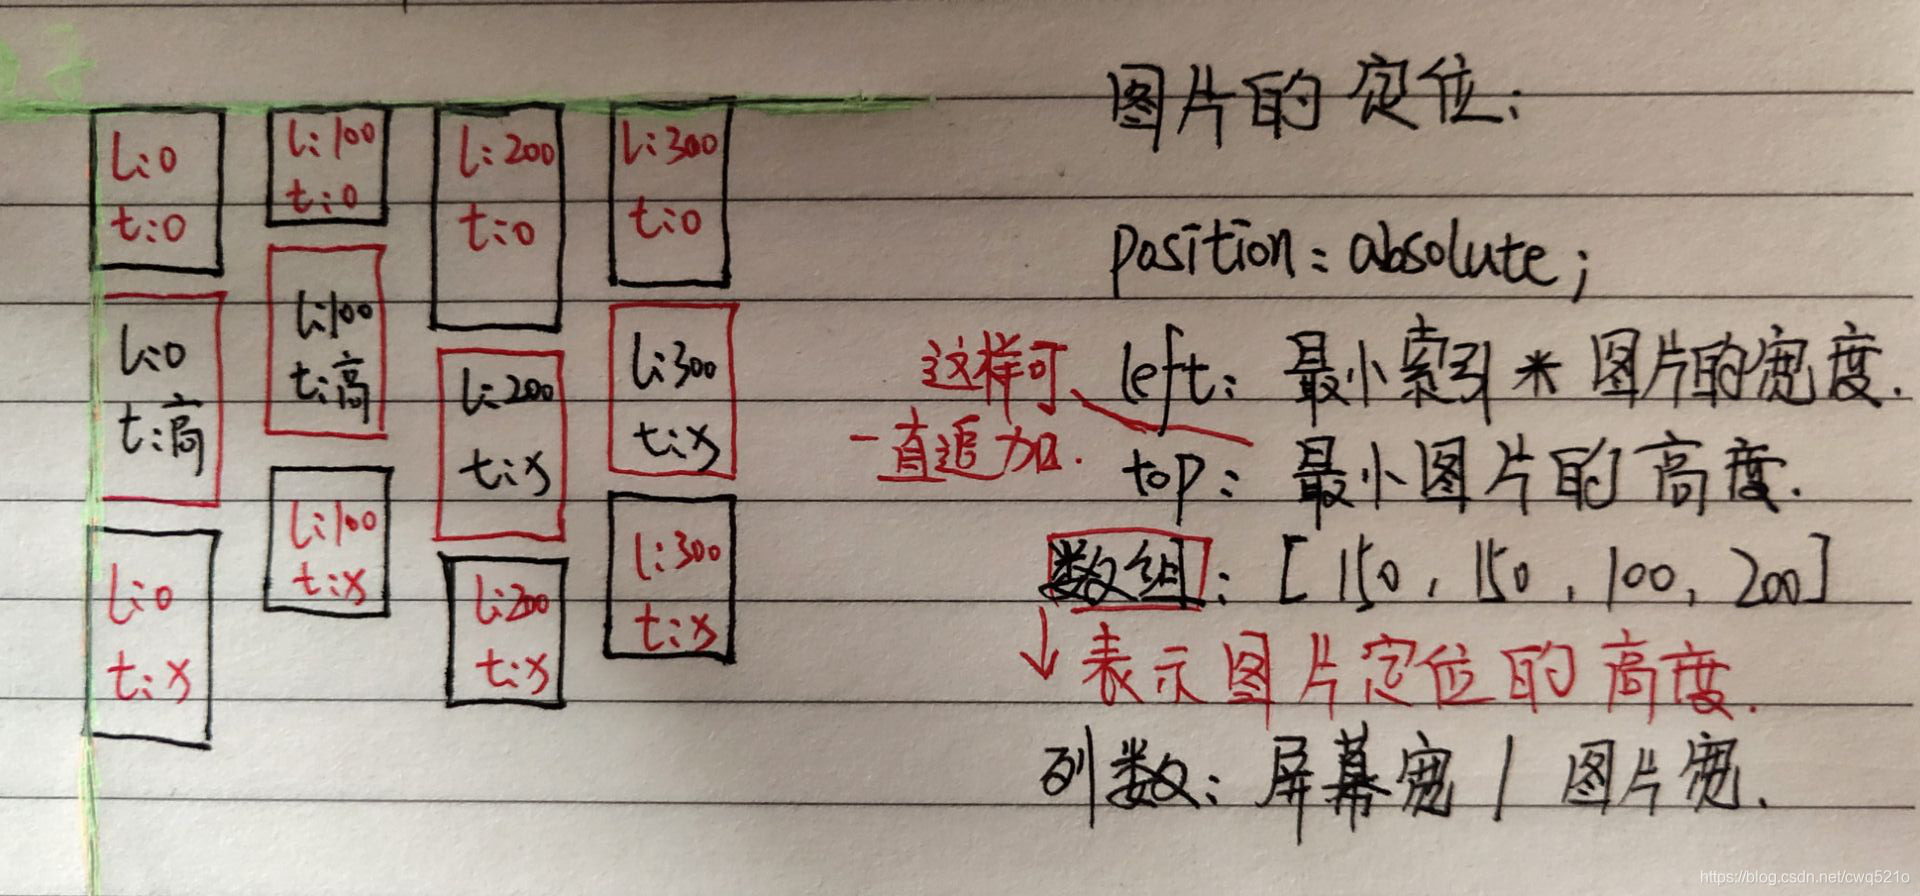 l:0
t:0
l:100
t:0
l:200
t:0
l:300
t:0
l:0
t:高
l:100
t:高
l:200
t:x
l:300
t:x
l:0
t:x
l:100
t:x
l:200
t:x
l:300
t:x
图片的定位:
position:absolute;
left: 最小索引 * 图片的宽度.
top: 最小图片的高度.
这样可
一直追加.
数组: [150, 150, 100, 200]
↓表示图片定位的高度.
列数: 屏幕宽 / 图片宽.
https://blog.csdn.net/cwq521o